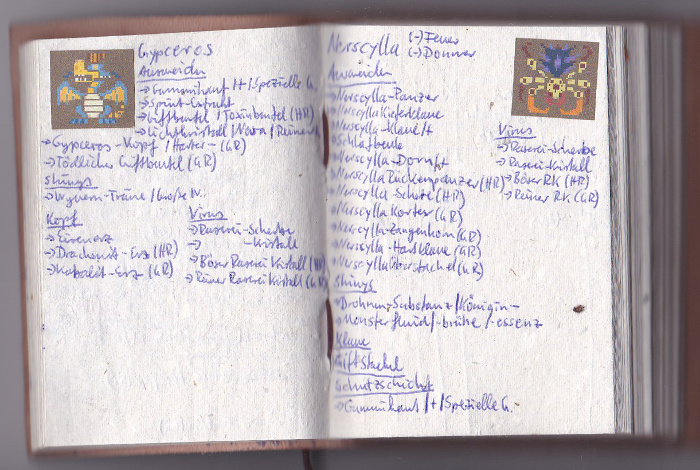 Gypceros
Ausweiden
→ Gummihaut /+/Spezielle G.
→ Sprint-Extrakt
→ Giftbeutel / Toxinbeutel (HR)
→ Lichtkristall /Nova / Reiner
→ Gypceros-Kopf / Harter- (GR)
→ Tödlicher Giftbeutel (GR)
Shinys
→ Wyvern-Träne / Große W.
Kopf
→ Eisenerz
→ Drachenit-Erz (HR)
→ Kobalit-Erz (GR)
Virus
→ Raserei-Scherbe
→ -Kristall
→ Böser Raserei Kristall (HR)
→ Reiner Raserei Kristall (GR)
Nerscylla (-) Feuer
(-) Donner
Ausweiden
→ Nerscylla-Panzer
→ Nerscylla Kieferklaue
→ Nerscylla-Klaue/+
→ Schlafbeutel
→ Nerscylla-Dorn/+
→ Nerscylla Rückenpanzer (HR)
→ Nerscylla-Schale (HR)
→ Nerscylla Kortex (GR)
→ Nerscylla-Zangenhorn (GR)
→ Nerscylla-Hartklaue (GR)
→ Nerscyllaüberstachel (GR)
Shinys
→ Drohnen-Substanz / Königin-
→ Monsterfluid/-brühe /-essenz
Klaue
Giftstachel
Schutzschicht
→ Gummihaut /+/Spezielle G.-
Virus
→ Raserei-Scherbe
→ Raserei-Kristall
→ Böser R.K. (HR)
→ Reiner R.K. (GR)